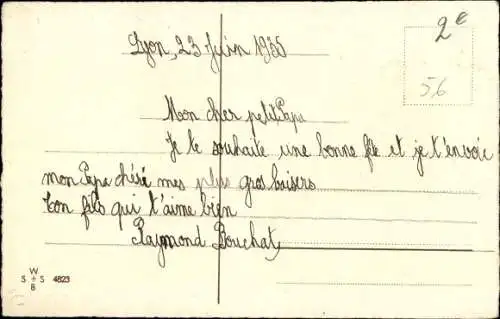 Lyon, 23 Juin 1935
2€
56
Mon cher petit Papa
Je te souhaite une bonne fête et je t'envoie
mon Papa chéri mes plus gros baisers
ton fils qui t'aime bien
Raymond Bouchat
W
S + S 4823
B